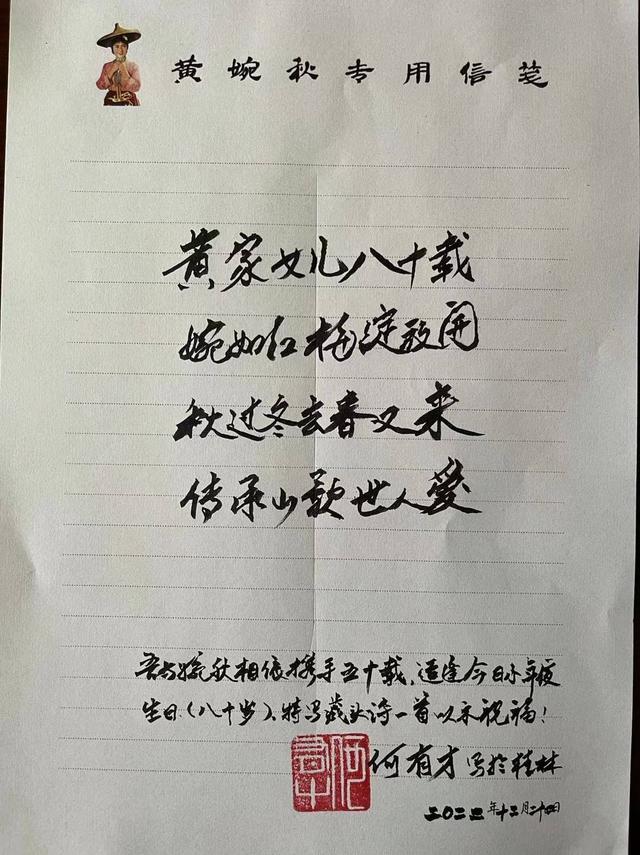 黄婉秋专用信笺
黄家女儿八十载
婉如红梅绽放开
秋过冬去春又来
传承山歌世人爱
吾与婉秋相依携手五十载,适逢今日小年夜
生日(八十岁)、特写藏头诗一首以示祝福!
何有才写于桂林
年十二月二十四日